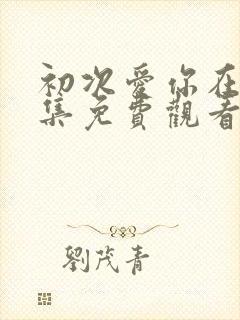 初次愛你在
集免費觀看
劉茂青